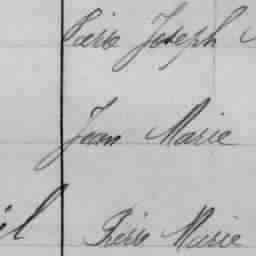 Pierre Joseph
Jean Marie
Pierre Marie